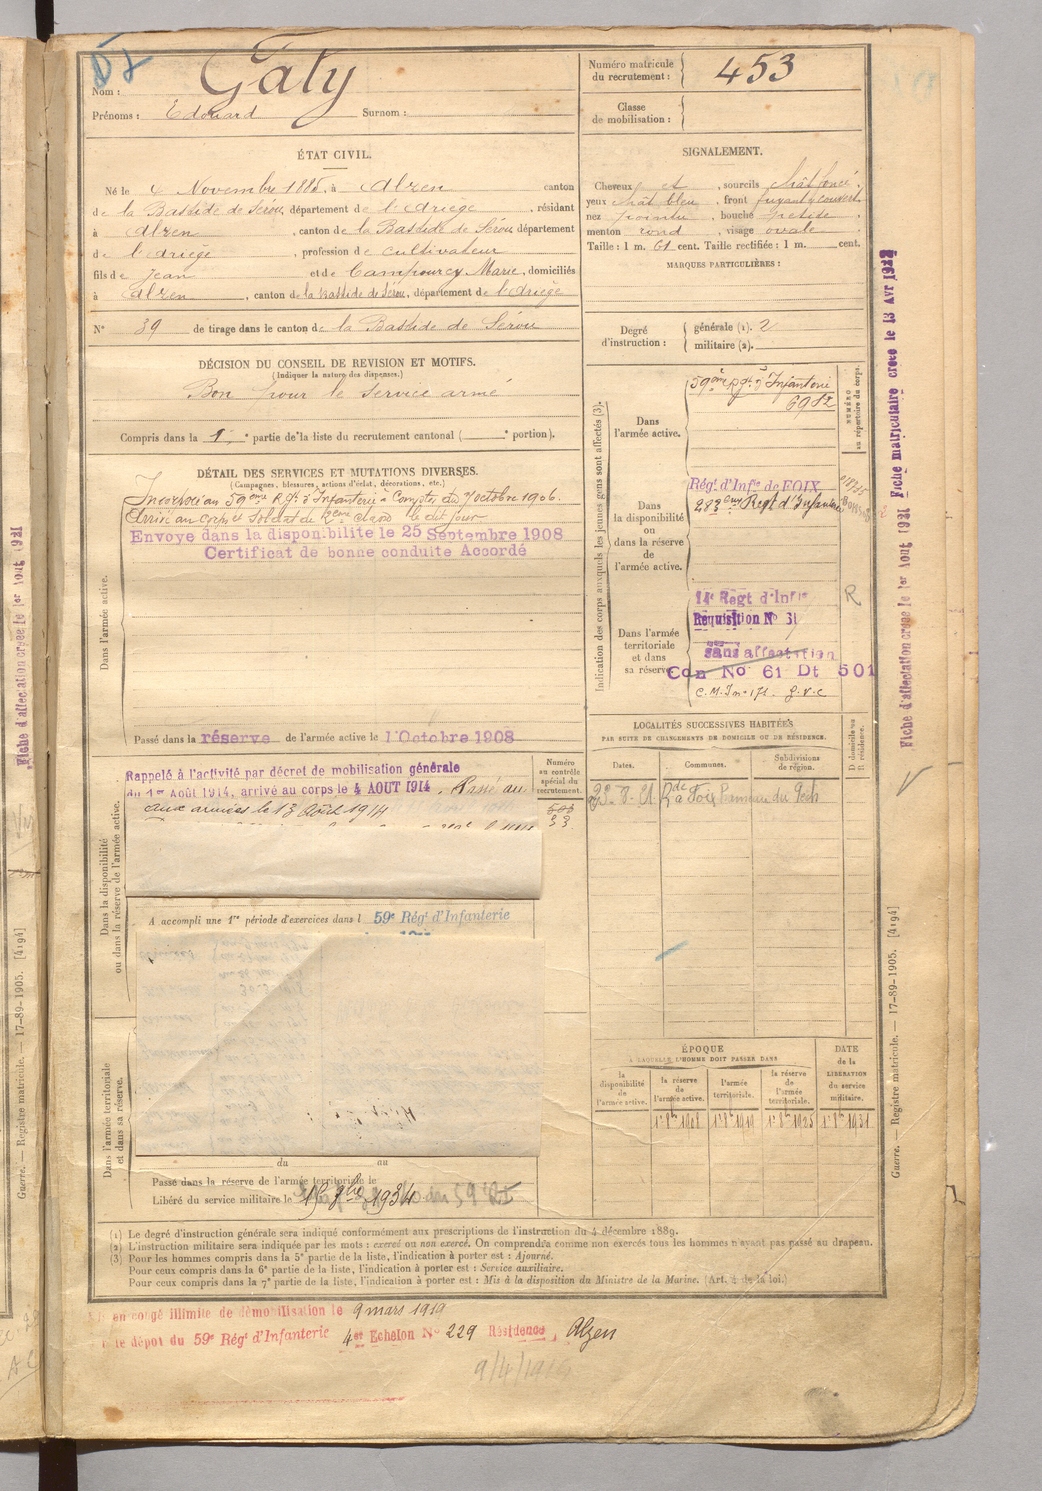 Nom : Galy
Prénoms : Edouard Surnom :
Numéro matricule du recrutement : 453
Classe de mobilisation :
ÉTAT CIVIL.
Né le 4 Novembre 1885, à Alzen canton
de la Bastide de Sérou, département de l'Ariège, résidant
à Alzen, canton de la Bastide de Sérou département
de l'Ariège, profession de cultivateur
fils de Jean et de Campourcy Marie, domiciliés
à Alzen, canton de la Bastide de Sérou, département de l'Ariège
N° 39 de tirage dans le canton de la Bastide de Sérou
SIGNALEMENT.
Cheveux et, sourcils chât foncé.
yeux chât bleu, front fuyant & couvert.
nez pointu, bouche petite
menton rond, visage ovale
Taille : 1 m. 61 cent. Taille rectifiée : 1 m. cent.
MARQUES PARTICULIÈRES :
Degré d'instruction :
générale (1). 2
militaire (2).
DÉCISION DU CONSEIL DE REVISION ET MOTIFS.
(Indiquer la nature des dispenses.)
Bon pour le service armé
Compris dans la 1e partie de la liste du recrutement cantonal ( e portion).
DÉTAIL DES SERVICES ET MUTATIONS DIVERSES.
(Campagnes, blessures, actions d'éclat, décorations, etc.)
Dans l'armée active.
Incorporé au 59ème Rgt d'Infanterie à Compter du 7 octobre 1906.
Arrivé au corps et soldat de 2ème classe le dit jour
Envoye dans la disponibilite le 25 Septembre 1908
Certificat de bonne conduite Accordé
Passé dans la réserve de l'armée active le 1 Octobre 1908
Indication des corps auxquels les jeunes gens sont affectés (3).
Dans l'armée active.
59ème Rgt d'Infanterie
6982
NUMÉRO au répertoire du corps.
Dans la disponibilité ou dans la réserve de l'armée active.
Régt d'Infie de FOIX
283ème Regt d'Infanterie
Dans l'armée territoriale et dans sa réserve.
14e Regt d'Infie
Requisition N° 31
sans affectation
Can No 61 Dt 501
R
LOCALITÉS SUCCESSIVES HABITÉES
PAR SUITE DE CHANGEMENTS DE DOMICILE OU DE RÉSIDENCE.
Dates. Communes. Subdivisions de région. D domicile ou R résidence.
Dans la disponibilité ou dans la réserve de l'armée active.
Rappelé à l'activité par décret de mobilisation générale
du 1er Août 1914, arrivé au corps le 4 AOUT 1914. Passé au
aux armées le 13 Août 1914
Numéro au contrôle spécial du recrutement.
A accompli une 1re période d'exercices dans l 59e Régt d'Infanterie
Dans l'armée territoriale et dans sa réserve.
du au
Passé dans la réserve de l'armée territoriale le
Libéré du service militaire le
ÉPOQUE
A LAQUELLE L'HOMME DOIT PASSER DANS
la disponibilité de l'armée active. la réserve de l'armée active. l'armée territoriale. la réserve de l'armée territoriale.
DATE de la LIBÉRATION du service militaire.
(1) Le degré d'instruction générale sera indiqué conformément aux prescriptions de l'instruction du 4 décembre 1889.
(2) L'instruction militaire sera indiquée par les mots : exercé ou non exercé. On comprendra comme non exercés tous les hommes n'ayant pas passé au drapeau.
(3) Pour les hommes compris dans la 5e partie de la liste, l'indication à porter est : Ajourné.
Pour ceux compris dans la 6e partie de la liste, l'indication à porter est : Service auxiliaire.
Pour ceux compris dans la 7e partie de la liste, l'indication à porter est : Mis à la disposition du Ministre de la Marine. (Art. de la loi.)
en congé illimite de démobilisation le 9 mars 1919
le dépot du 59e Régt d'Infanterie 4e Echelon N° 229 Résidence, Alzen
Fiche d'affectation créée le 1er Aout 1921
Fiche matriculaire créée le 13 Avr
Guerre. — Registre matricule. — 17-89-1905. [4194]
Fiche d'affectation créée le 1er Aout 1921
Guerre. — Registre matricule. — 17-89-1905. [4194]